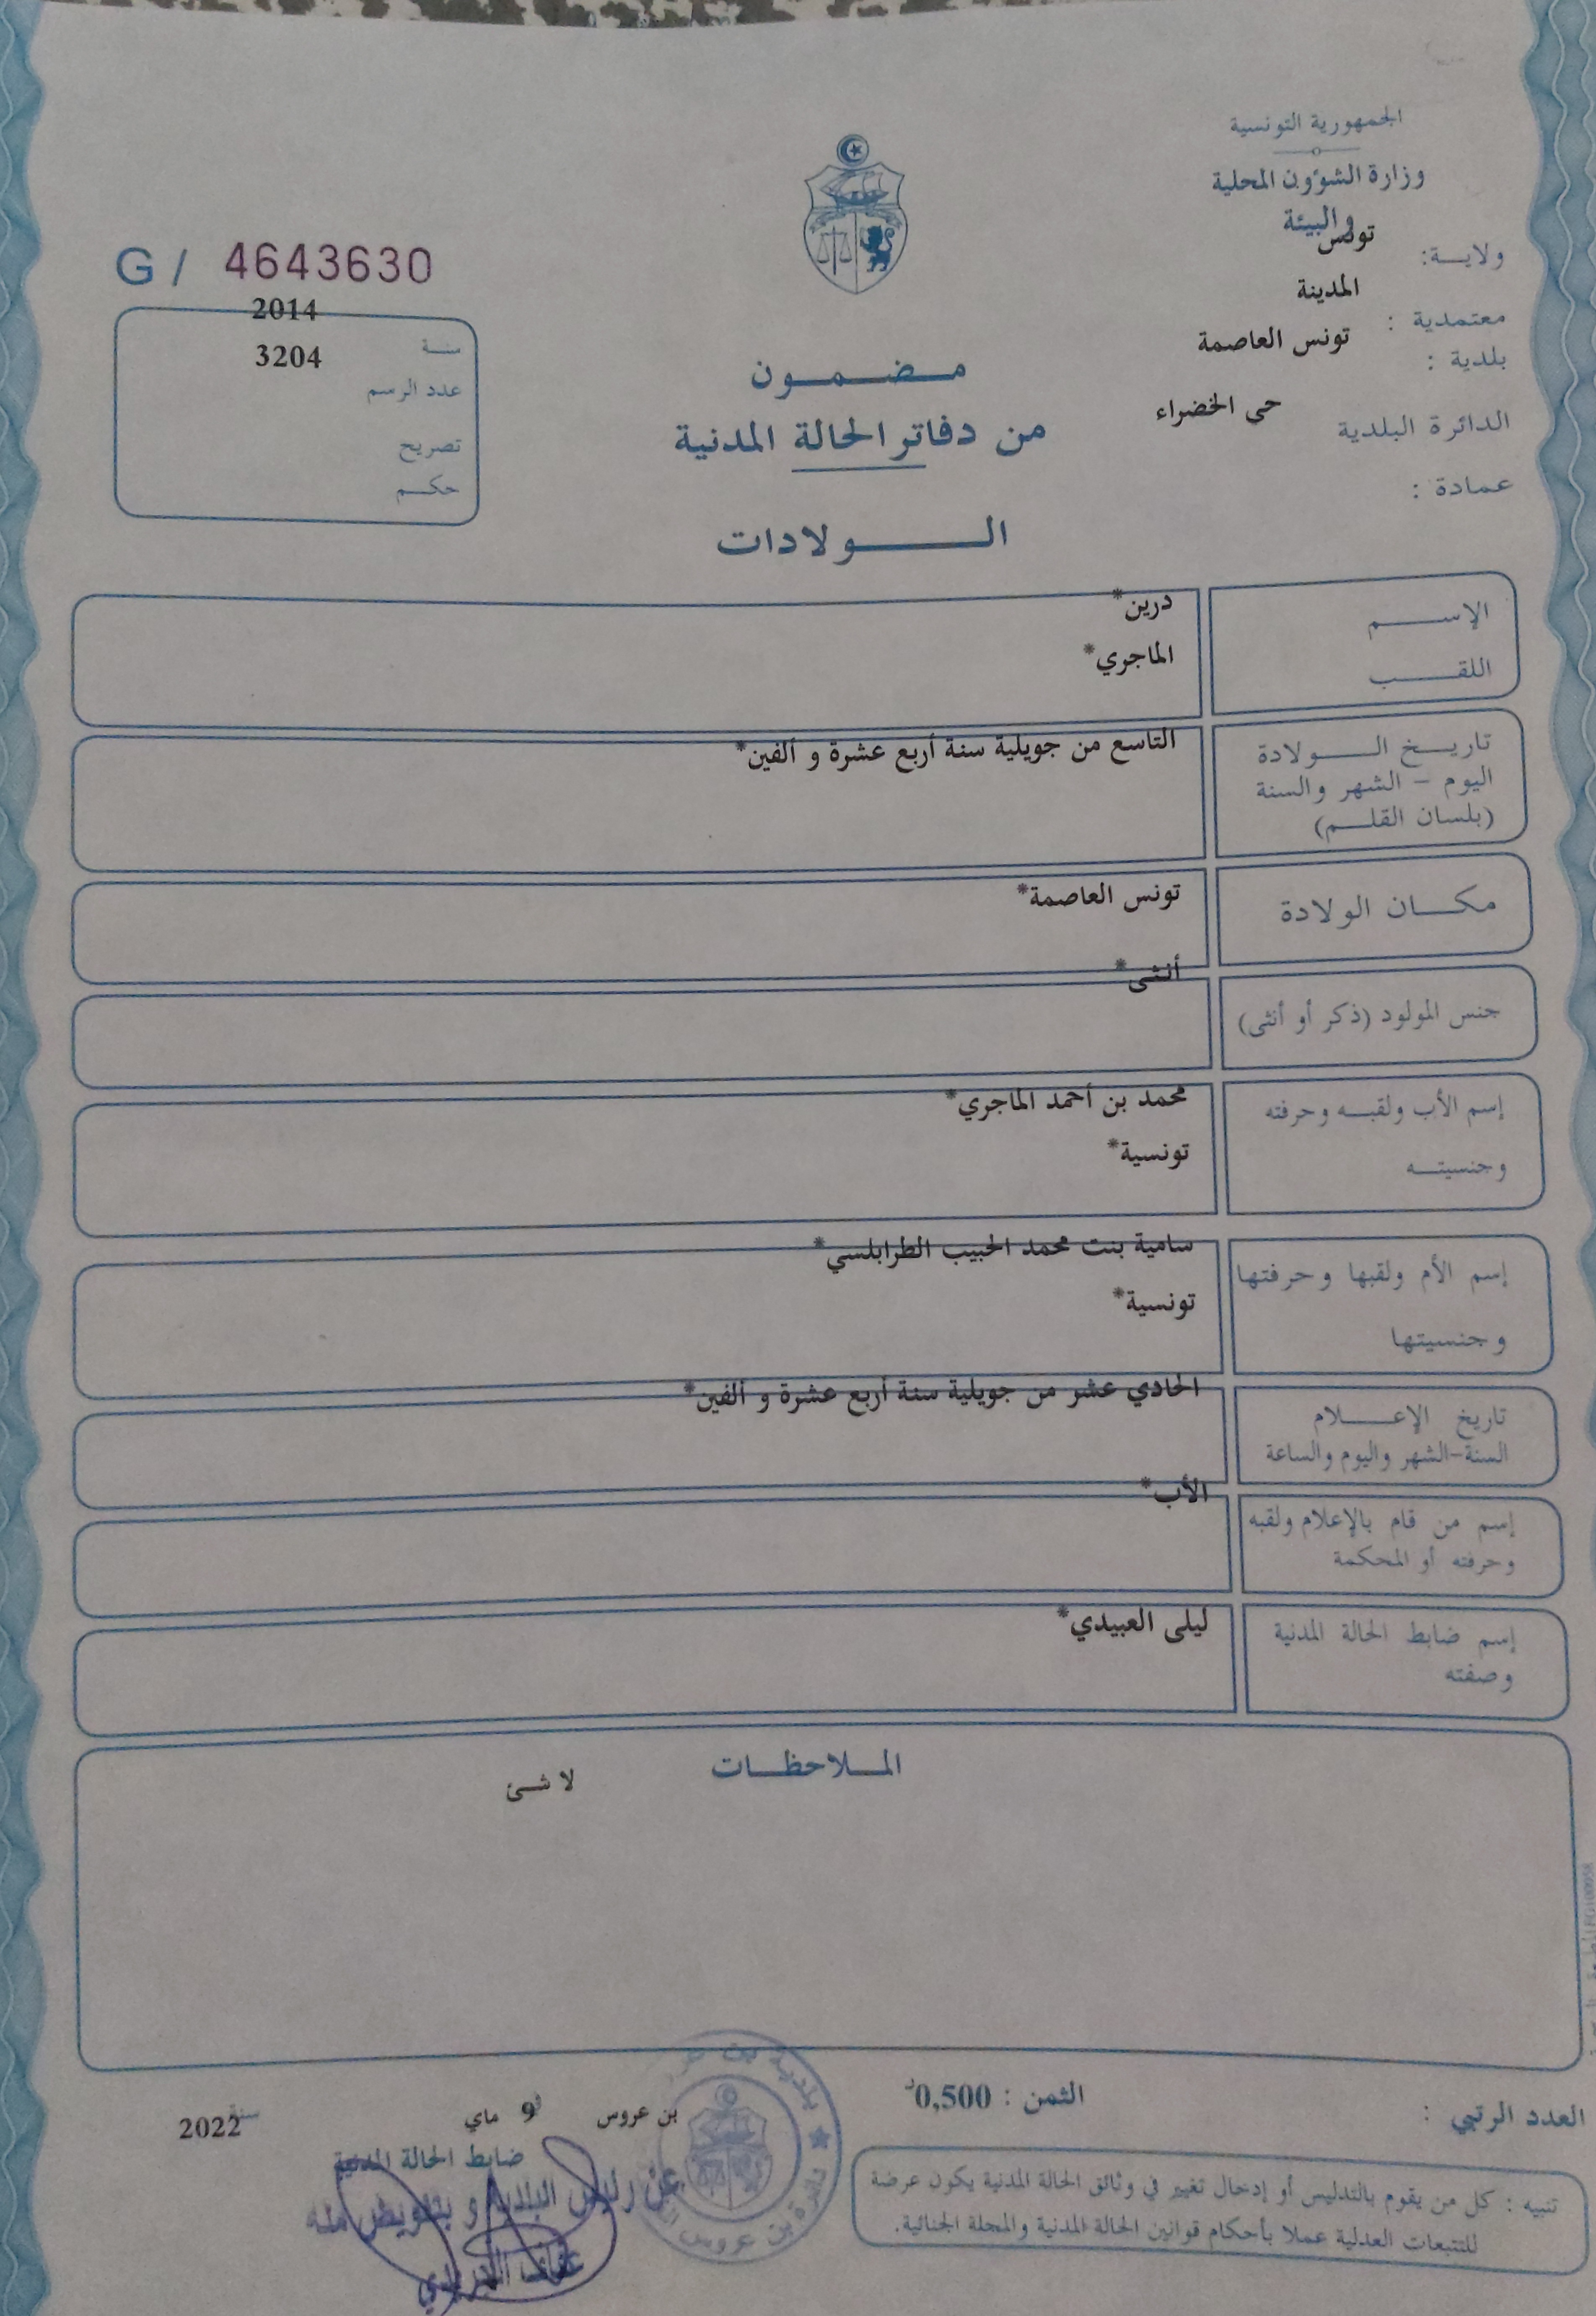 الجمهورية التونسية
وزارة الشؤون المحلية
والبيئة
ولايــة: تونس
معتمدية : المدينة
بلدية : تونس العاصمة
الدائرة البلدية حى الخضراء
عمادة :
G / 4643630
سنـة 2014
عدد الرسم 3204
تصريح
حكــم
مـضـمـون
من دفاتر الحالة المدنية
الــولادات
الإســـم درين*
اللقـــب الماجري*
تاريــخ الـــولادة التاسع من جويلية سنة أربع عشرة و ألفين*
اليوم - الشهر والسنة
(بلسان القلــم)
مكــان الولادة تونس العاصمة*
جنس المولود (ذكر أو أنثى) أنثى*
إسم الأب ولقبــه وحرفته محمد بن أحمد الماجري*
وجنسيتــه تونسية*
إسم الأم ولقبها وحرفتها سامية بنت محمد الحبيب الطرابلسي*
وجنسيتها تونسية*
تاريخ الإعـــلام الحادي عشر من جويلية سنة أربع عشرة و ألفين*
السنة-الشهر واليوم والساعة
إسم من قام بالإعلام ولقبه الأب*
وحرفته أو المحكمة
إسم ضابط الحالة المدنية ليلى العبيدي*
وصفته
المــلاحظــات
لا شئ
العدد الرتبي :
الثمن : 0,500د
بن عروس 9 ماي سنة 2022
ضابط الحالة المدنية
عن رئيس البلدية و بتفويض منه
بلدية بن
دائرة بن عروس
تنبيه : كل من يقوم بالتدليس أو إدخال تغيير في وثائق الحالة المدنية يكون عرضة
للتتبعات العدلية عملا بأحكام قوانين الحالة المدنية والمجلة الجنائية.